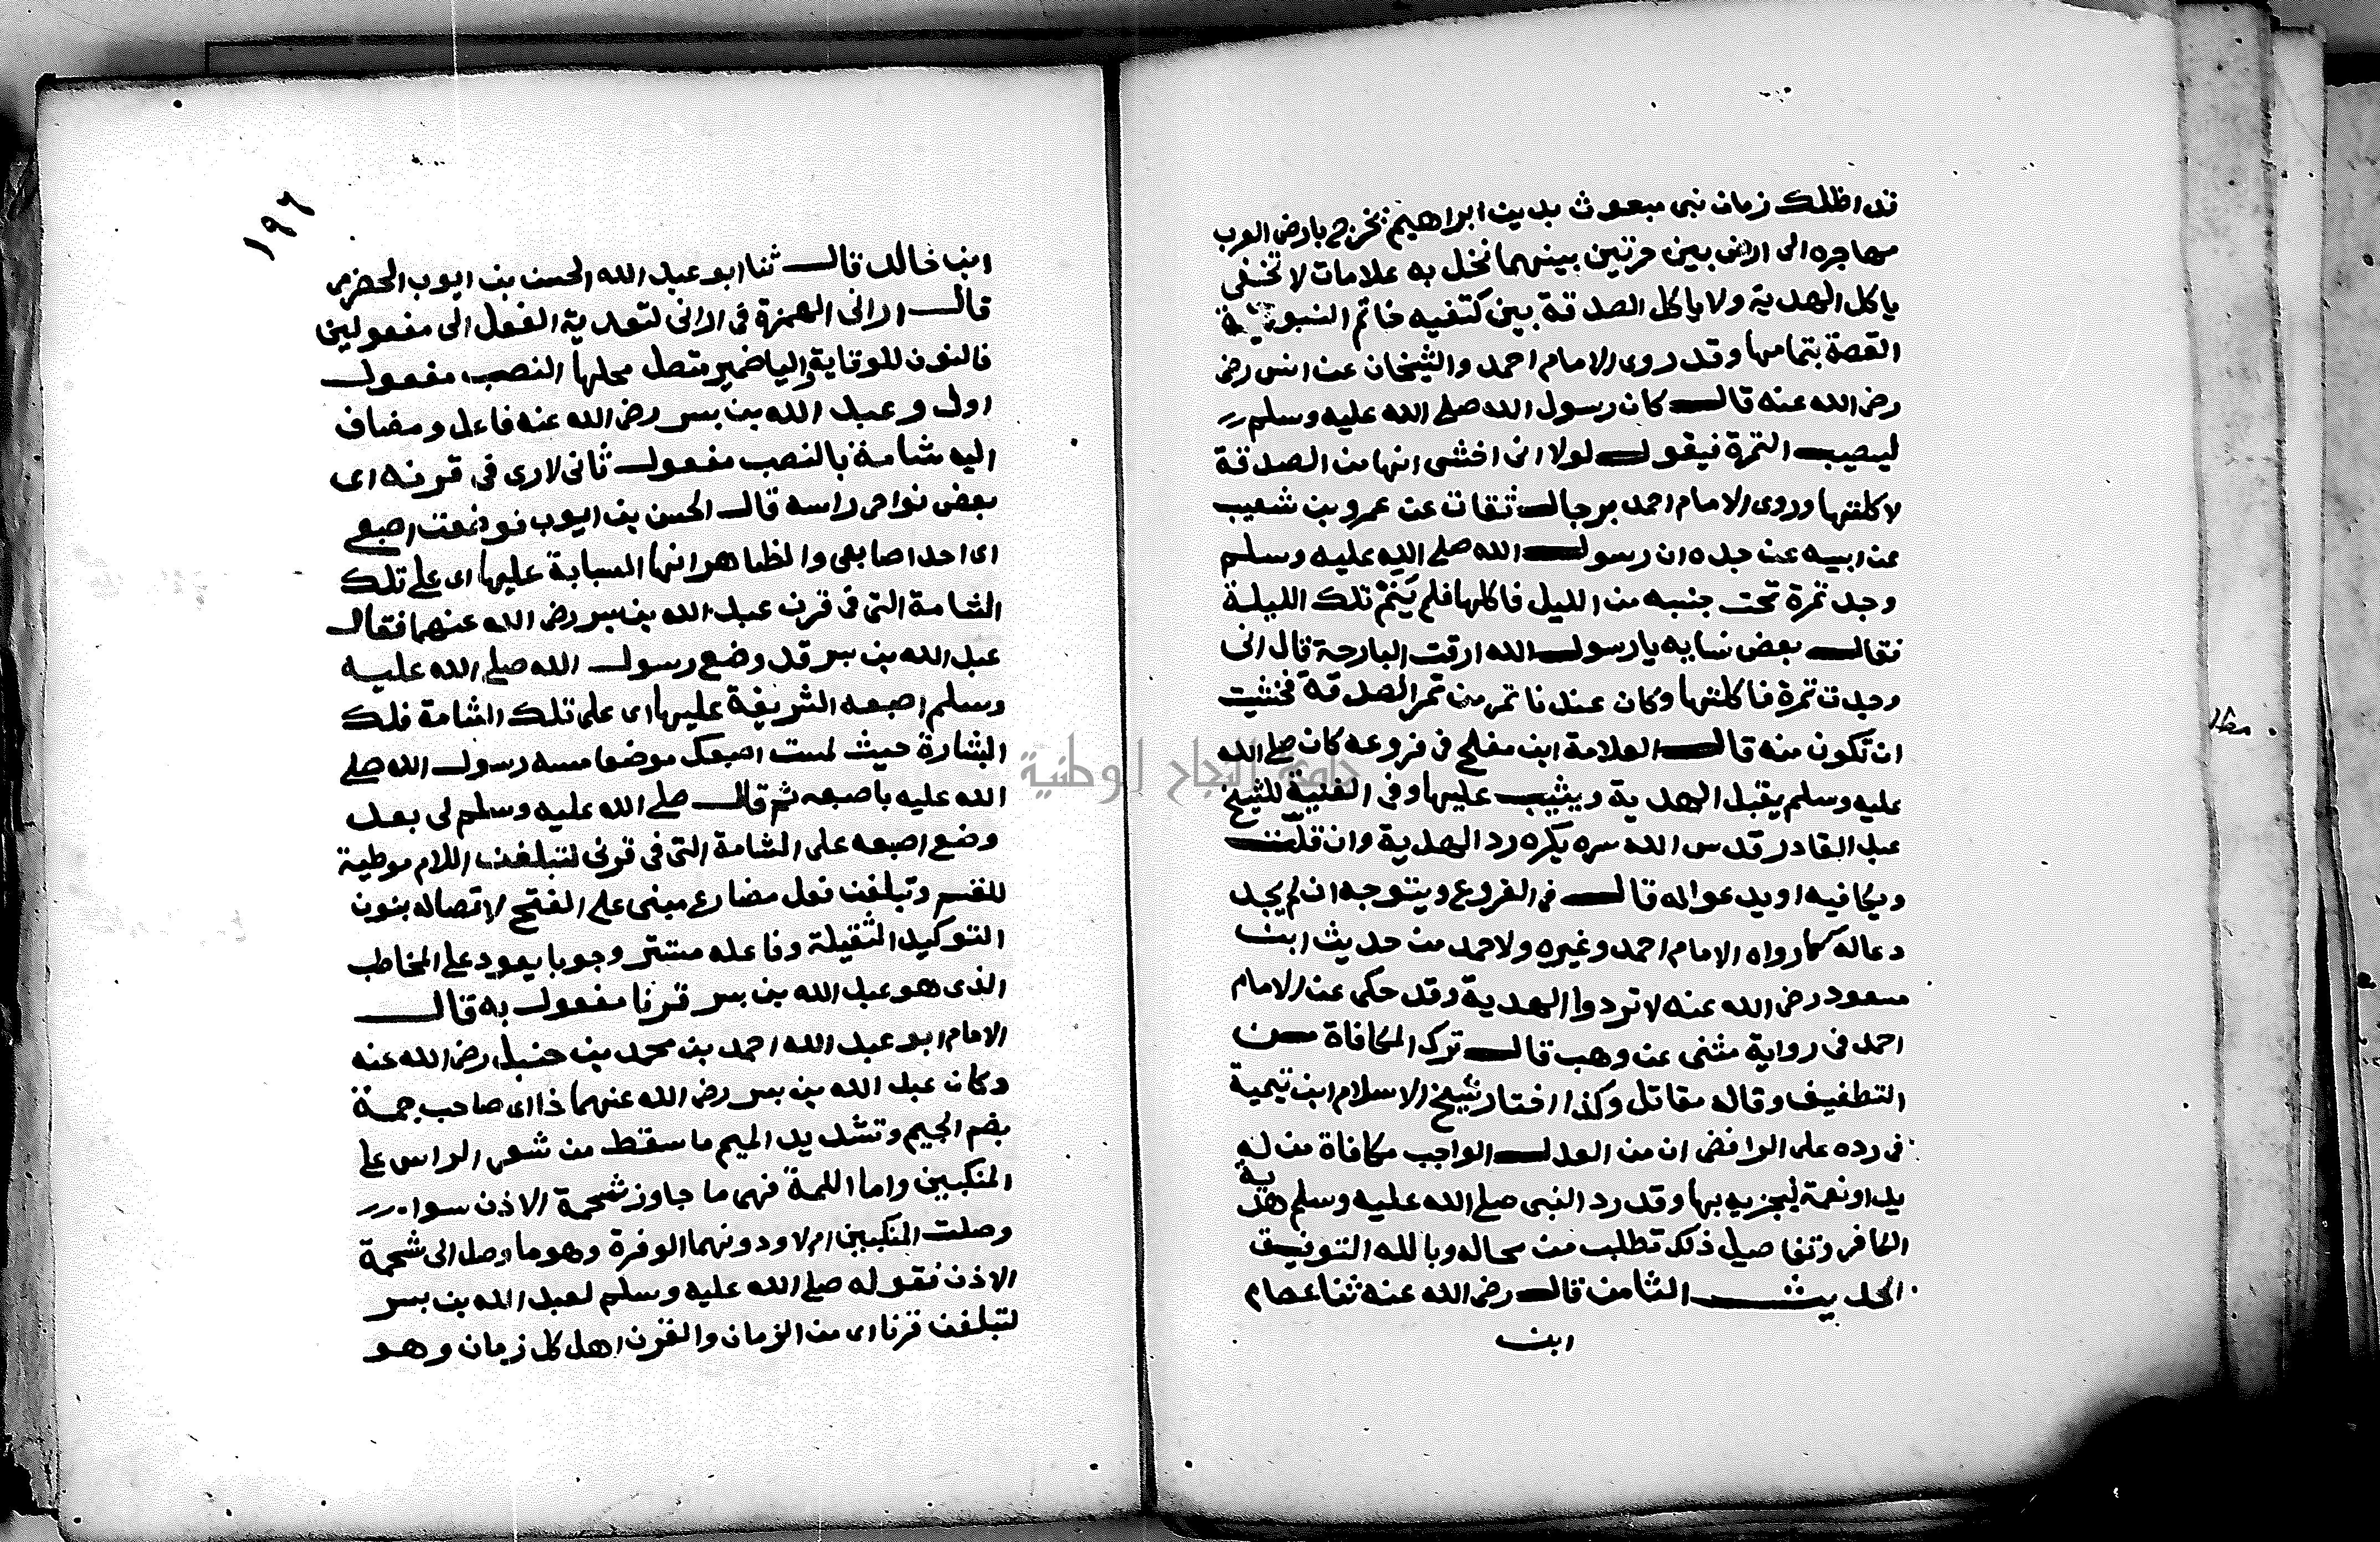 قد اظلك زمان نبي مبعوث بدين ابراهيم يخرج بارض العرب
مهاجره الى ارض بين حرتين بينهما نخل به علامات لا تخفى
ياكل الهدية ولا ياكل الصدقة بين كتفيه خاتم النبوة
القصة بتمامها وقد روى الامام احمد والشيخان عن انس رضي
رضي الله عنه قال كان رسول الله صلى الله عليه وسلم
ليصيب التمرة فيقول لولا انى اخشى انها من الصدقة
لاكلتها وروى الامام احمد برجال ثقات عن عمرو بن شعيب
عن ابيه عن جده ان رسول الله صلى الله عليه وسلم
وجد تمرة تحت جنبه من الليل فاكلها فلم ينم تلك الليلة
فقال بعض نسايه يا رسول الله ارقت البارحة قال انى
وجدت تمرة فاكلتها وكان عندنا تمر من تمر الصدقة فخشيت
ان تكون منه قال العلامة ابن مفلح في فروعه كان صلى الله
عليه وسلم يقبل الهدية ويثيب عليها وفي الغنية للشيخ
عبد القادر قدس الله سره يكره رد الهدية وان قلت
ويكافيه او يدعو له قال في الفروع ويتوجه ان لم يجد
دعا له كما رواه الامام احمد وغيره ولاحمد من حديث ابن
مسعود رضي الله عنه لا تردوا الهدية وقد حكى عن الامام
احمد في رواية مثنى عن وهب قال ترك المكافاة من
التطفيف وقاله مقاتل وكذا اختار شيخ الاسلام ابن تيمية
في رده على الرافضي ان من العدل الواجب مكافاة من له
يد او نعمة ليجزيه بها وقد رد النبي صلى الله عليه وسلم هدية
الكافر وتفاصيل ذلك تطلب من محاله وبالله التوفيق
الحديث الثامن قال رضي الله عنه ثنا عصام
ابن
١٩٦
ابن خالد قال ثنا ابو عبد الله الحسن بن ايوب الحضرمي
قال اراني الهمزة في اراني لتعدية الفعل الى مفعولين
فالنون للوقاية واليا ضمير متصل محلها النصب مفعول
اول وعبد الله بن بسر رضي الله عنه فاعل ومضاف
اليه شامة بالنصب مفعول ثاني لارى في قرنه اى
بعض نواحي راسه قال الحسن بن ايوب فوضعت اصبعي
اى احد اصابعي والظاهر انها السبابة عليها اى على تلك
الشامة التى في قرن عبد الله بن بسر رضي الله عنهما فقال
عبد الله بن بسر قد وضع رسول الله صلى الله عليه
وسلم اصبعه الشريفة عليها اى على تلك الشامة فلك
البشارة حيث لمست اصبعك موضعا مسه رسول الله صلى
الله عليه باصبعه ثم قال صلى الله عليه وسلم لى بعد
وضع اصبعه على الشامة التى في قرنى لتبلغن اللام موطية
للقسم وتبلغن فعل مضارع مبنى على الفتح لاتصاله بنون
التوكيد الثقيلة وفاعله مستتر وجوبا يعود على المخاطب
الذى هو عبد الله بن بسر قرنا مفعول به قال
الامام ابو عبد الله احمد بن محمد بن حنبل رضي الله عنه
وكان عبد الله بن بسر رضي الله عنهما ذا اى صاحب جمة
بضم الجيم وتشديد الميم ما سقط من شعر الراس على
المنكبين واما اللمة فهى ما جاوز شحمة الاذن سواء
وصلت المنكبين ام لا ودونهما الوفرة وهو ما وصل الى شحمة
الاذن فقوله صلى الله عليه وسلم لعبد الله بن بسر
لتبلغن قرنا اى من الزمان والقرن اهل كل زمان وهو
جامعة النجاح الوطنية